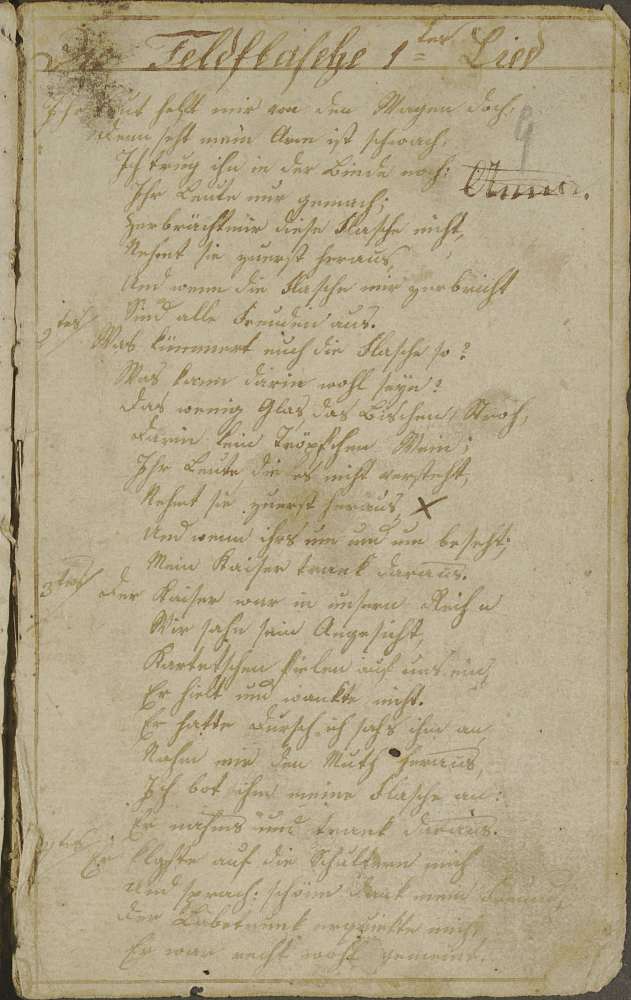 Die Feldflasche 1tes Lied
9
Ihr Leut helft mir von den Wagen doch,
denn seht mein Arm ist schwach,
Ich trug ihn in der Binde noch;
Anna.
Ihr Leute nur gemach;
Zerbrächt mir diese Flasche nicht,
Nehmt sie zuerst heraus,
Und wenn die Flasche mir zerbricht
Sind alle Freuden aus.
2tes
Was kümmert euch die Flasche so?
Was kann darin wohl seyn?
das wenig Glas, das Bischen, Stroh,
darin kein Tröpfchen Wein;
Ihr Leute, die es nicht versteht,
Nehmt sie zuerst heraus, x
Und wenn ihrs um und um beseht;
Mein Kaiser trank daraus.
3tes
der Kaiser war in unsern Reih n
Wir sahn sein Angesicht,
Kartetschen fielen auf uns ein,
Er hielt und wankte nicht.
Er hatte dursch ich sahs ihm an
Nahm mir den Muth heraus,
Ich bot ihm meine Flasche an:
Er nahms und trank daraus.
4tes
Er klopfte auf die Schultern mich
und sprach: schönn dank mein Freund,
der Labetrunk erquickte mich
Er war recht wohl gemeint.